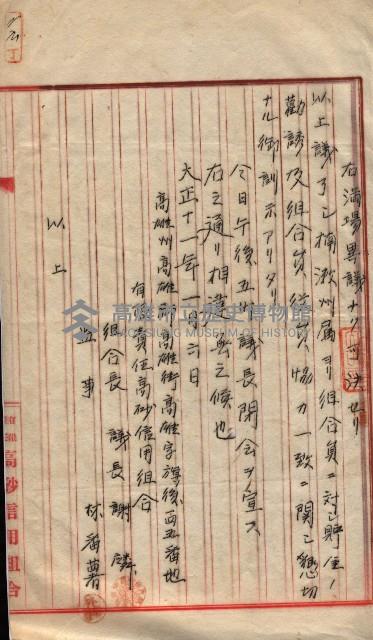 右満場異議ナク可決セリ
以上議了シ楠瀬州属ヨリ組合員ニ対シ貯金ノ
勧誘及組合員役員協力一致ニ関シ懇切
ナル御訓示アリタリ
今日午後五時議長閉会ヲ宣ス
右之通リ相違無之候也
大正十一年一月六日
高雄州高雄郡高雄街高雄字旗後一四五番地
有限責任高砂信用組合
組合長 議長 謝隣
監事 林番薯
以上
高雄市立歷史博物館
KAOHSIUNG MUSEUM OF HISTORY
高砂信用組合